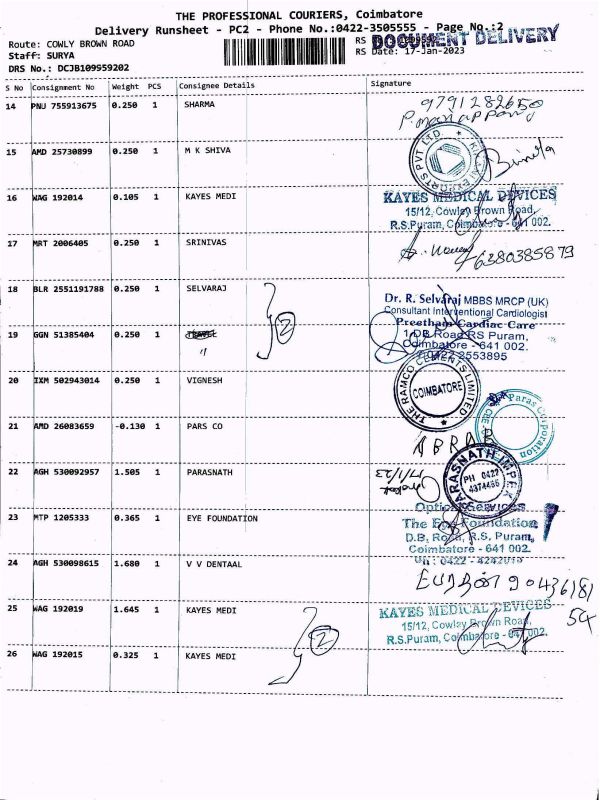 THE PROFESSIONAL COURIERS, Coimbatore
Delivery Runsheet - PC2 - Phone No.:0422-3505555 - Page No.:2
Route: COWLY BROWN ROAD
Staff: SURYA
DRS No.: DCJB109559202
DOCUMENT DELIVERY
RS Date: 17-Jan-2023
S No Consignment No Weight PCS Consignee Details Signature
14 PNU 755913675 0.250 1 SHARMA
9791282650
15 AMD 25730899 0.250 1 M K SHIVA
16 WAG 192014 0.105 1 KAYES MEDI
KAYES MEDICAL DEVICES
15/12, Cowley Brown Road,
R.S.Puram, Coimbatore - 641 002.
17 MRT 2006405 0.250 1 SRINIVAS
6380385879
18 BLR 2551191788 0.250 1 SELVARAJ
2
Dr. R. Selvaraj MBBS MRCP (UK)
Consultant Interventional Cardiologist
Preetham Cardiac Care
1,DB Road RS Puram,
Coimbatore - 641 002.
0422 2553895
19 GGN 51385404 0.250 1
20 IXM 502943014 0.250 1 VIGNESH
THE RAMCO CEMENTS LIMITED
COIMBATORE
21 AMD 26083659 -0.130 1 PARS CO
Paras Corporation
22 AGH 530092957 1.505 1 PARASNATH
17/1/23
PARASNATH IMPEX
PH 0422
4374486
23 MTP 1205333 0.365 1 EYE FOUNDATION
Optical Services
The Eye Foundation
D.B. Road, R.S. Puram,
Coimbatore - 641 002.
24 AGH 530098615 1.680 1 V V DENTAAL
25 WAG 192019 1.645 1 KAYES MEDI
2
KAYES MEDICAL DEVICES
15/12, Cowley Brown Road,
R.S.Puram, Coimbatore - 641 002.
26 WAG 192015 0.325 1 KAYES MEDI